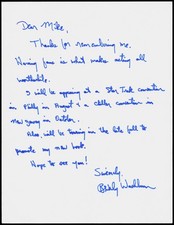 Dear Mike,
Thanks for remembering me.
Having fans is what makes acting all
worthwhile.
I will be appearing at a Star Trek convention
in Philly in August & a collectors convention in
New Jersey in October.
Also, will be touring in the late fall to
promote my new book.
Hope to see you!
Sincerely,
Beverly Washburn